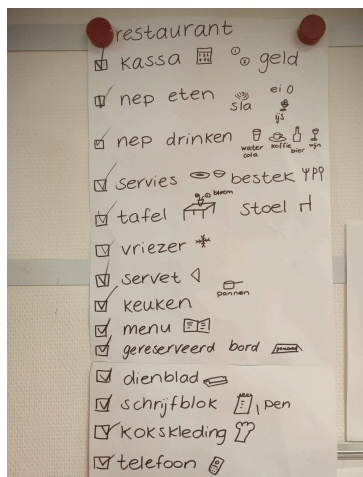 restaurant
kassa geld
nep eten sla ei ijs
nep drinken water cola koffie bier wijn
servies bestek
bloem
tafel stoel
vriezer
servet
pannen
keuken
menu
gereserveerd bord
dienblad
schrijfblok, pen
kokskleding
telefoon